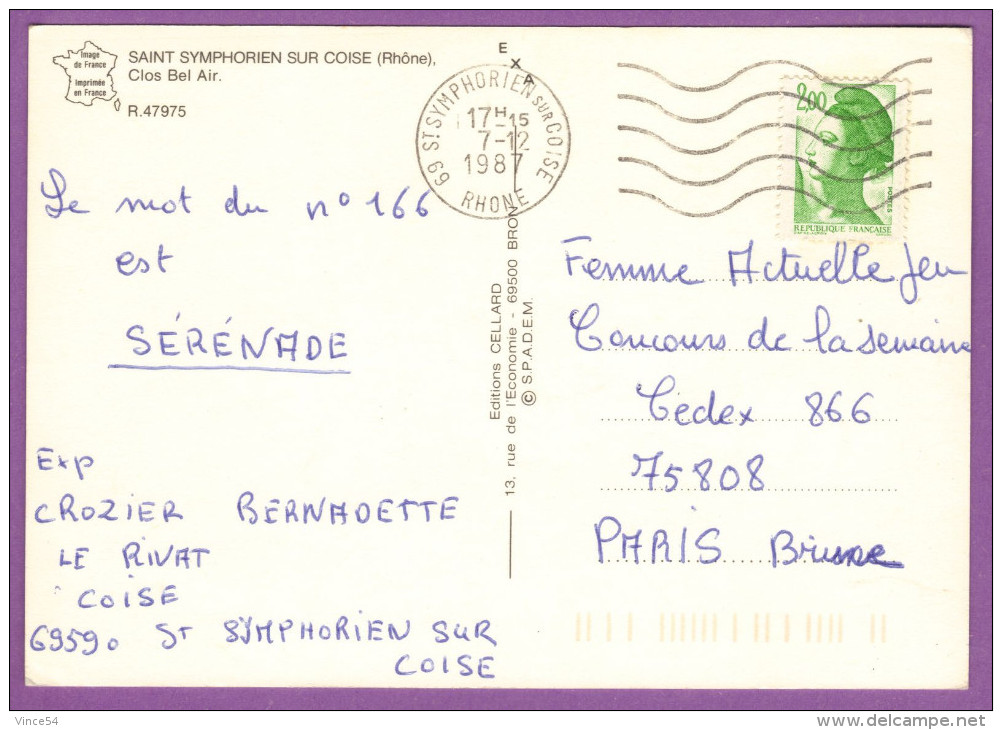 Image
de France
Imprimée
en France
SAINT SYMPHORIEN SUR COISE (Rhône),
Clos Bel Air.
R.47975
E
X
A
69 ST SYMPHORIEN SUR COISE
17H-15
7-12
1987
RHONE
2,00
POSTES
REPUBLIQUE FRANÇAISE
Le mot du n° 166
est
SÉRÉNADE
Exp
CROZIER BERNADETTE
LE RIVAT
COISE
69590 ST SYMPHORIEN SUR
COISE
Editions CELLARD
13, rue de l'Economie - 69500 BRON
© S.P.A.D.E.M.
Femme Actuelle Jeu
Concours de la semaine
Cédex 866
75808
PARIS Brune
Vince54
delcampe.net